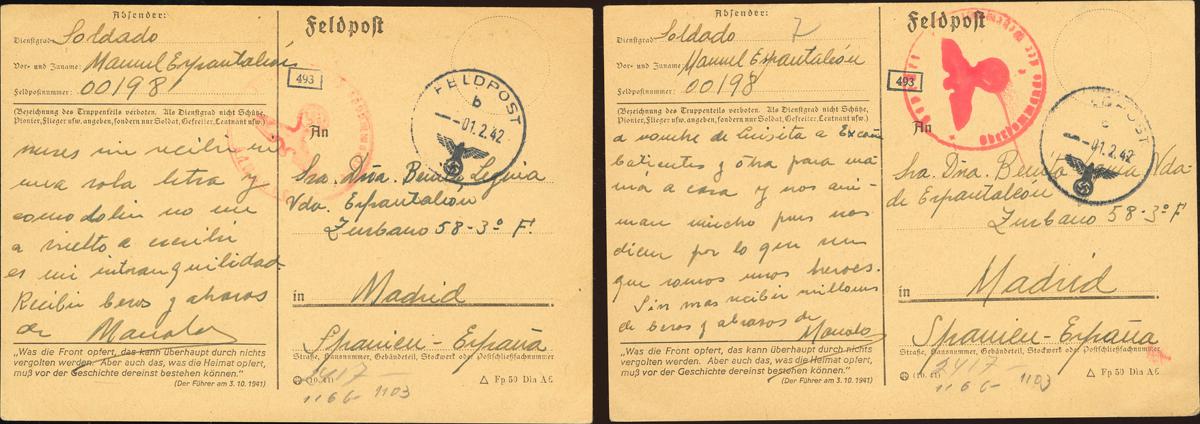 Absender:
Dienstgrad: Soldado
Vor- und Zuname: Manuel Espantaleón
Feldpostnummer: 00198
(Bezeichnung des Truppenteils verboten. Als Dienstgrad nicht Schütze,
Pionier, Flieger usw. angeben, sondern nur Soldat, Gefreiter, Leutnant usw.)
meses sin recibir ni
una sola letra y
como dolin no me
a vuelto a escribir
es mi intranquilidad.
Recibir besos y abrazos
de Manolo
„Was die Front opfert, das kann überhaupt durch nichts
vergolten werden. Aber auch das, was die Heimat opfert,
muß vor der Geschichte dereinst bestehen können.“
(Der Führer am 3. 10. 1941)
Feldpost
493
FELDPOST
b
-01.2.42
An
Sra. Dña. Benita Leginia
Vda. Espantaleón
Zurbano 58-3º F.
in Madrid
Spanien-España
Straße, Hausnummer, Gebäudeteil, Stockwerk oder Postschließfachnummer
(10. 41)
Fp 50 Din A6
2417
1166- 1103
Absender:
7
Dienstgrad: Soldado
Vor- und Zuname: Manuel Espantaleón
Feldpostnummer: 00198
(Bezeichnung des Truppenteils verboten. Als Dienstgrad nicht Schütze,
Pionier, Flieger usw. angeben, sondern nur Soldat, Gefreiter, Leutnant usw.)
a nombre de Luisita a Excom
batientes y otra para ma
má a casa y nos ani-
man mucho pues nos
dicen por lo que ven
que somos unos heroes.
Sin mas recibir millones
de besos y abrazos de Manolo
„Was die Front opfert, das kann überhaupt durch nichts
vergolten werden. Aber auch das, was die Heimat opfert,
muß vor der Geschichte dereinst bestehen können.“
(Der Führer am 3. 10. 1941)
Feldpost
493
-01.2.42
An
Sra. Dña. Benita Vda
de Espantaleón
Zurbano 58-3º F.
in Madrid
Spanien-España
Straße, Hausnummer, Gebäudeteil, Stockwerk oder Postschließfachnummer
(10. 41)
Fp 50 Din A6
2417-
1166- 1103